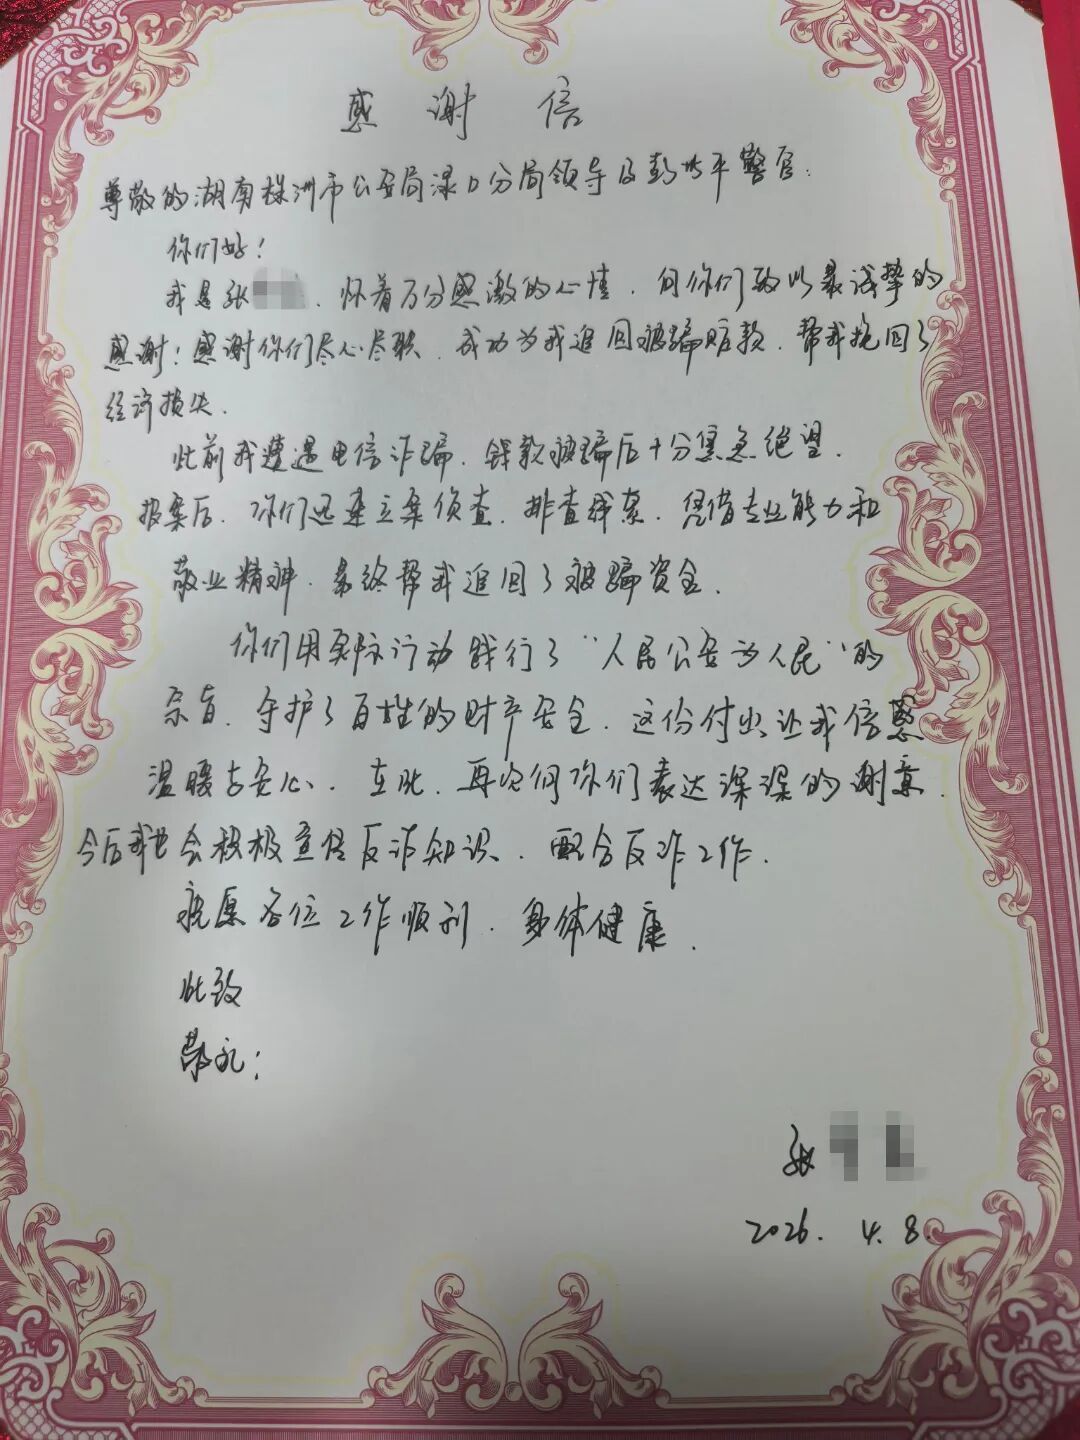 感谢信
尊敬的湖南株洲市公安局渌口分局领导及彭 平警官:
你们好!
我是张 、怀着万分感激的心情,向你们致以最诚挚的
感谢!感谢你们尽心尽职、成功为我追回被骗赃款,帮我挽回了
经济损失.
此前我遭遇电信诈骗,钱款被骗后十分焦急绝望.
报案后,你们迅速立案侦查,排查线索,凭借专业能力和
敬业精神,最终帮我追回了被骗资金.
你们用实际行动践行了"人民公安为人民"的
宗旨,守护了百姓的财产安全,这份付出让我倍感
温暖与安心.在此,再次向你们表达深深的谢意.
今后我也会积极宣传反诈知识、配合反诈工作.
祝愿各位工作顺利,身体健康.
此致
敬礼!
张
2026.4.8.